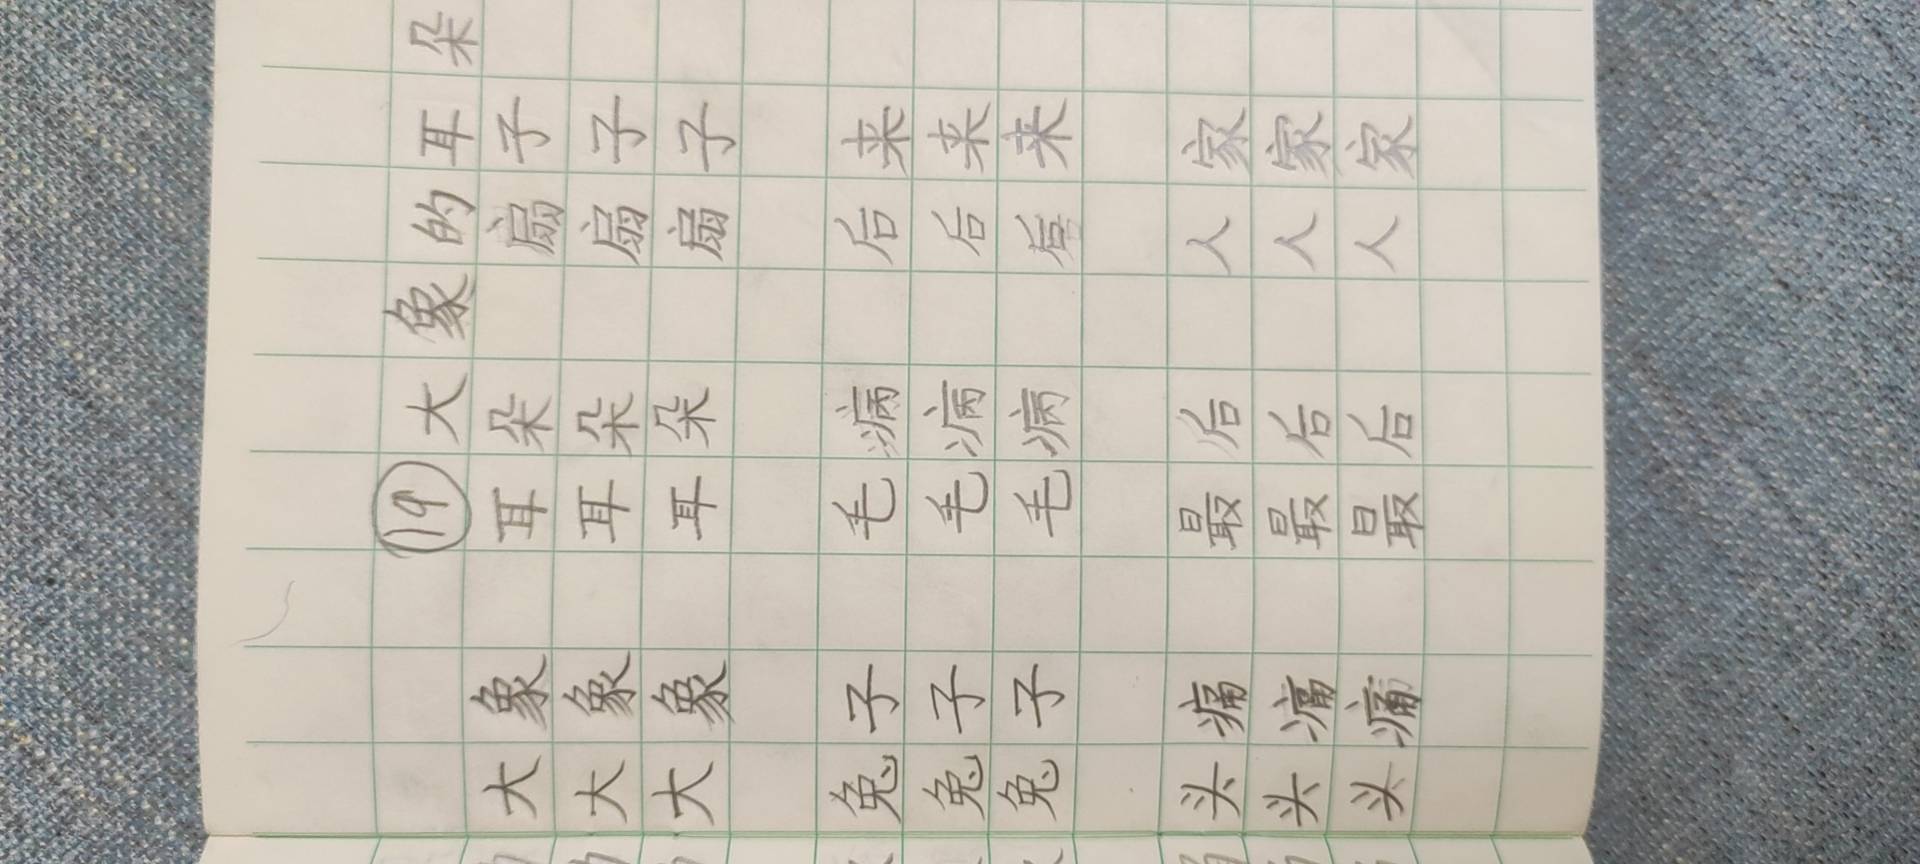 ⑲ 大象的耳朵
大象 耳朵 扇子
大象 耳朵 扇子
大象 耳朵 扇子
兔子 毛病 后来
兔子 毛病 后来
兔子 毛病 后来
头痛 最后 人家
头痛 最后 人家
头痛 最后 人家